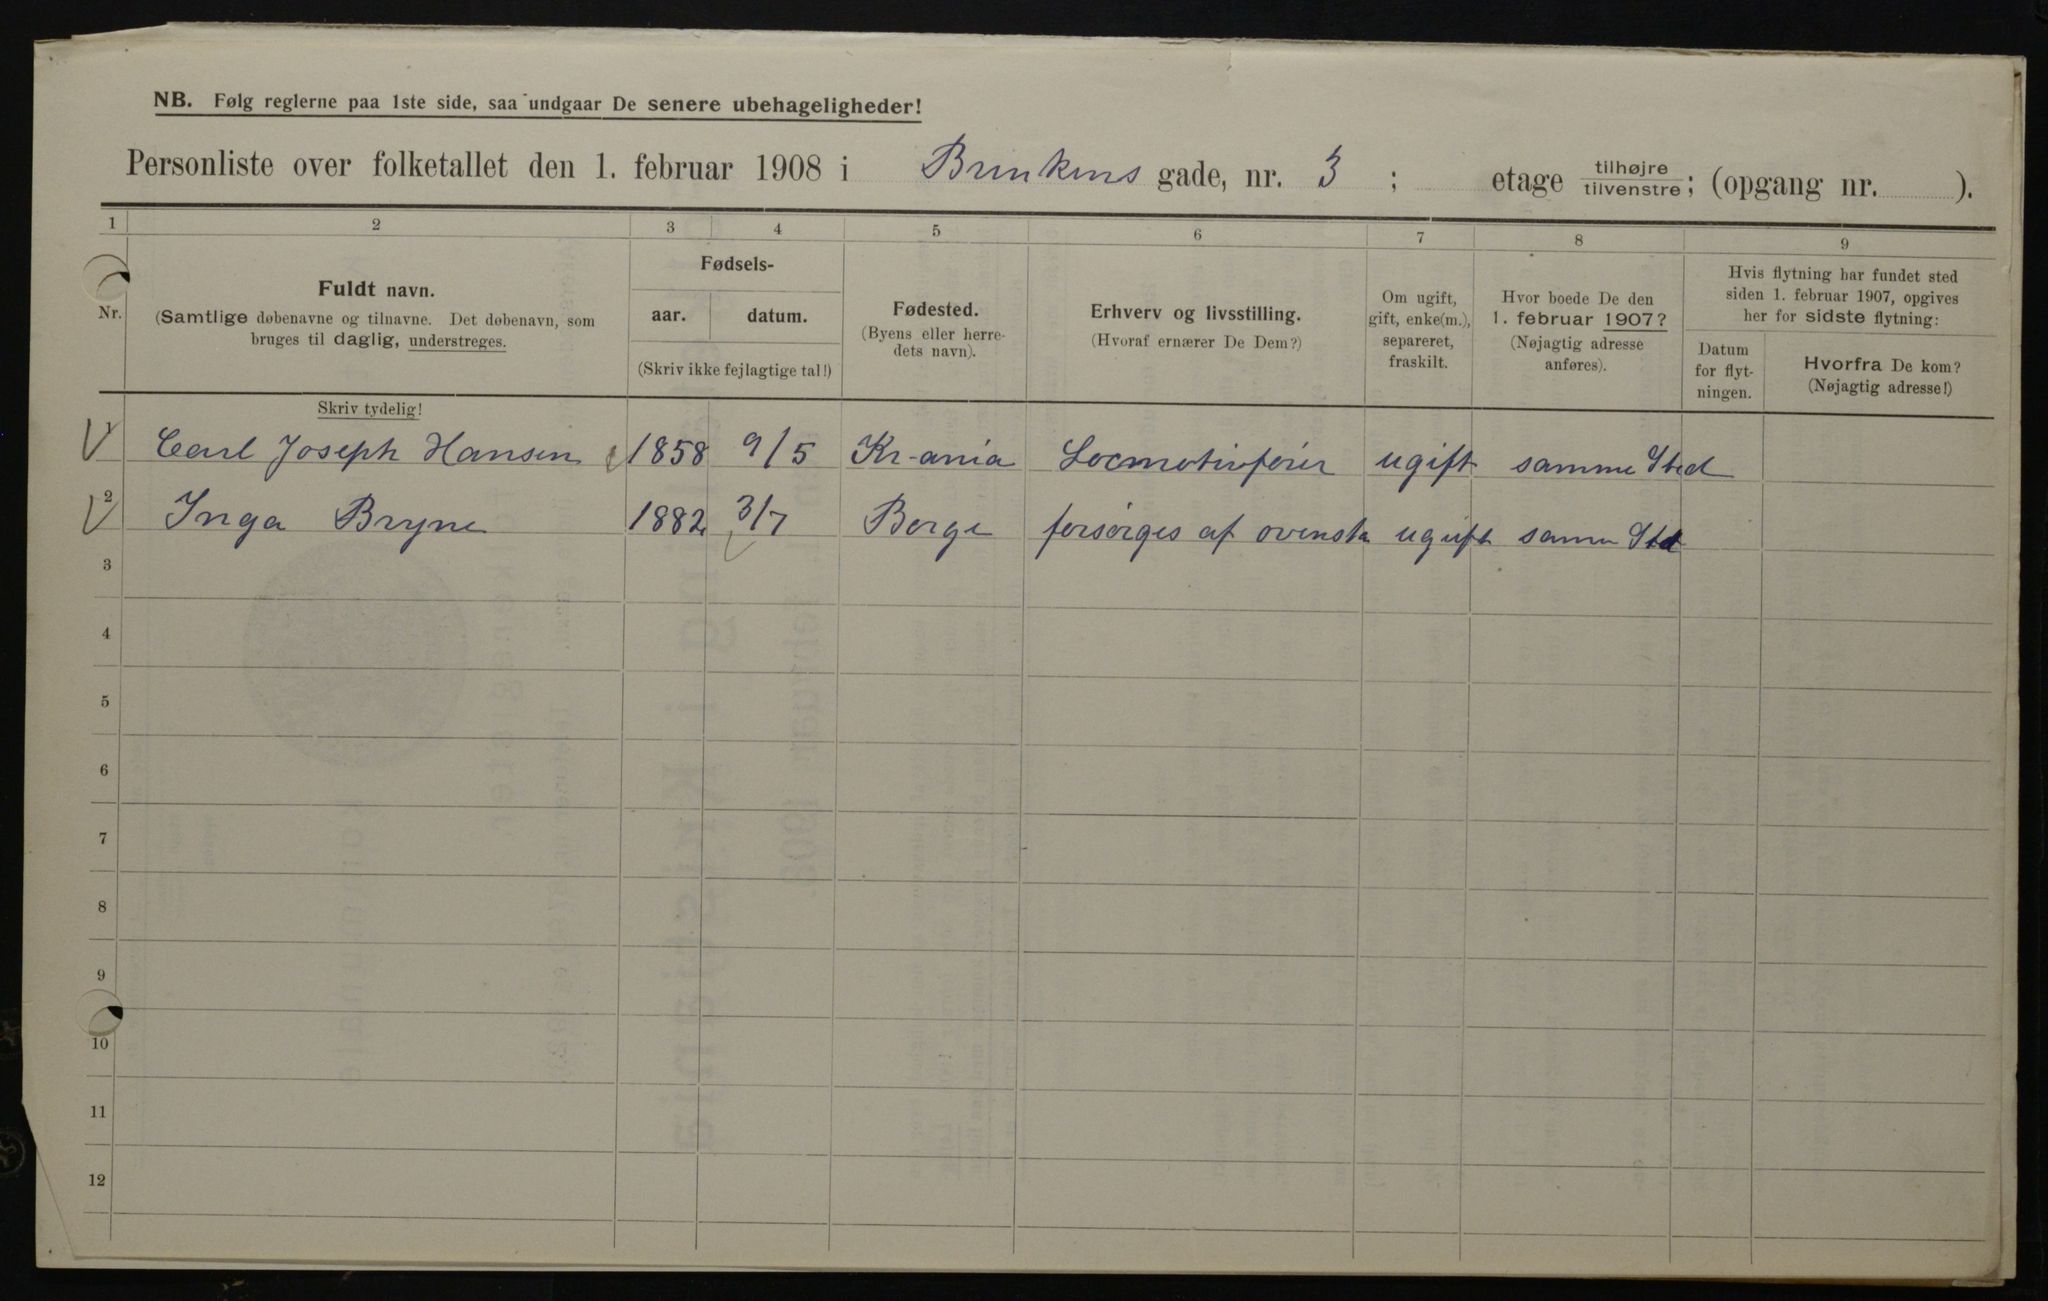 NB. Følg reglerne paa 1ste side, saa undgaar De senere ubehageligheder!
Personliste over folketallet den 1. februar 1908 i Brinkens gade, nr. 3 ; etage tilhøjre/tilvenstre; (opgang nr. ).
1 2 3 4 5 6 7 8 9
Nr.
Fuldt navn.
(Samtlige døbenavne og tilnavne. Det døbenavn, som
bruges til daglig, understreges.
Skriv tydelig!
Fødsels-
aar. datum.
(Skriv ikke fejlagtige tal!)
Fødested.
(Byens eller herre-
dets navn).
Erhverv og livsstilling.
(Hvoraf ernærer De Dem?)
Om ugift,
gift, enke(m.),
separeret,
fraskilt.
Hvor boede De den
1. februar 1907?
(Nøjagtig adresse
anføres).
Hvis flytning har fundet sted
siden 1. februar 1907, opgives
her for sidste flytning:
Datum
for flyt-
ningen.
Hvorfra De kom?
(Nøjagtig adresse!)
1 Carl Joseph Hansen 1858 9/5 Kr-ania Locmotivfører ugift samme Sted
2 Inga Bryne 1882 3/7 Borge forsørges af ovensta ugift samme Sted
3
4
5
6
7
8
9
10
11
12